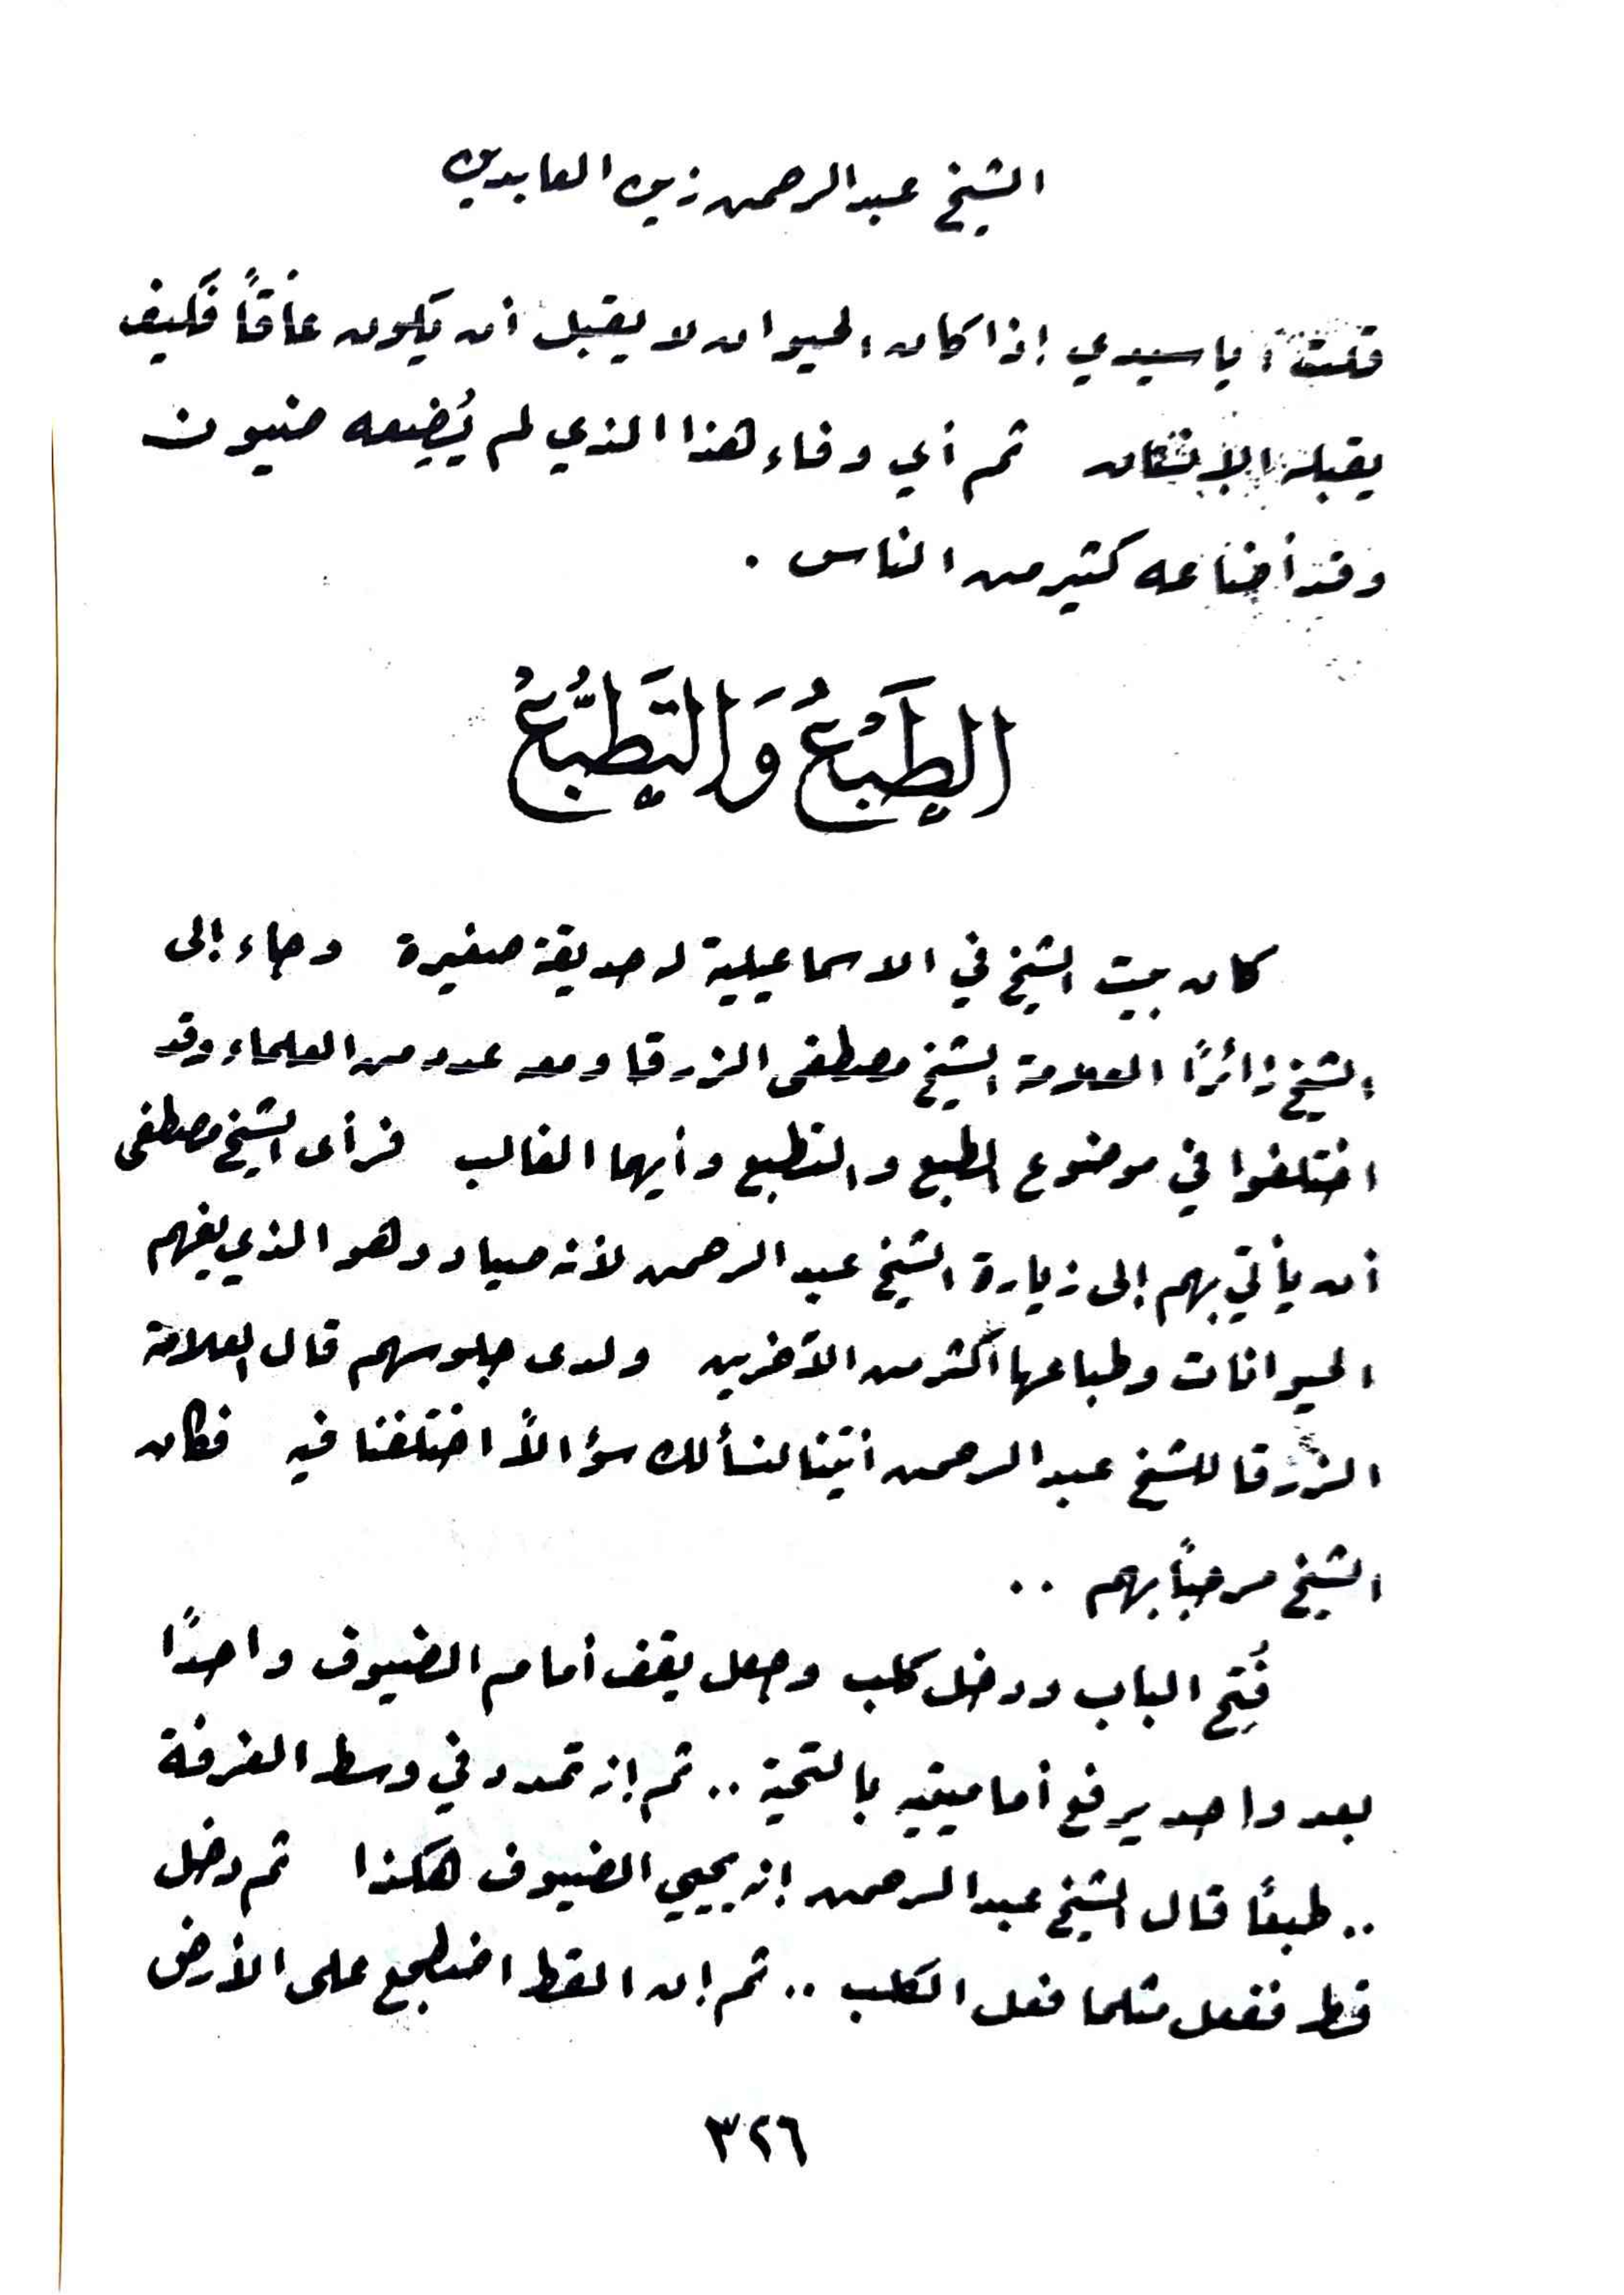 الشيخ عبدالرحمن زين العابدين
قلت: يا سيدي إذا كان الحيوان لا يقبل أن يكون عاقًّا فكيف
يقبله الإنسان ثم أي وفاء هذا الذي لم يُضِيعه حيوان
وقد أضاعه كثير من الناس .
الطَّبْعُ وَالتَّطَبُّعُ
كان بيت الشيخ في الاسماعيلية له حديقة صغيرة وجاء إلى
الشيخ زائرًا العلامة الشيخ مصطفى الزرقا ومعه عدد من العلماء وقد
اختلفوا في موضوع الطبع والتطبع وأيهما الغالب فرأى الشيخ مصطفى
أن يأتي بهم إلى زيارة الشيخ عبد الرحمن لأنه صياد وهو الذي يفهم
الحيوانات وطباعها أكثر من الآخرين ولدى جلوسهم قال العلامة
الزرقا للشيخ عبد الرحمن أتينا لنسألك سؤالاً اختلفنا فيه فكان
الشيخ مرحباً بهم ..
فُتِح الباب ودخل كلب وجعل يقف أمام الضيوف واحدًا
بعد واحد يرفع أماميتيه بالتحية .. ثم إنه تمدد في وسط الغرفة
.. طبعًا قال الشيخ عبد الرحمن إنه يحيي الضيوف هكذا ثم دخل
قط ففعل مثلما فعل الكلب .. ثم إن القط اضطجع على الأرض
٣٢٦